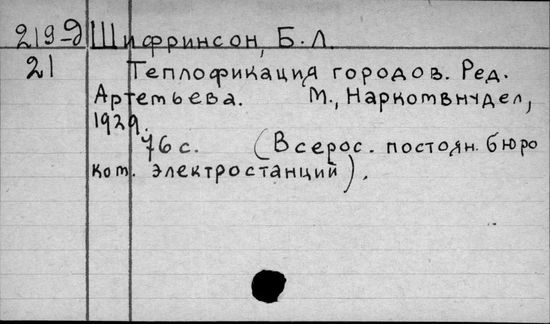 219-д Шифринсон, Б.Л.
21 Теплофикация городов. Ред.
Артемьева. М., Наркомвнудел,
1929.
76 с. (Всерос. постоян. бюро
ком. электростанций).